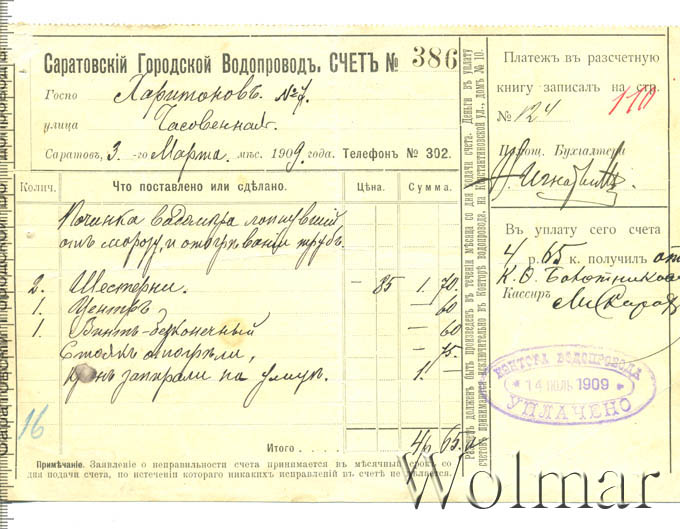 Саратовскій Городской Водопроводъ. СЧЕТЪ № 386
Госпо Харитоновъ. №7.
улица Часовенная.
Саратовъ, 3 -го Марта мѣс. 1909 года. Телефонъ № 302.
Колич. Что поставлено или сдѣлано. Цѣна. Сумма.
Починка водомѣра лопнувшій
отъ морозу, и отогрѣваніи трубъ.
2. Шестерни. — 85 1. 70.
1. Центръ — 60
1. Винтъ-безконечный — 60
Стоякъ отогрѣли, — 75.
Кранъ запирали на улицѣ. 1. —
16
Итого 4 р. 65 к.
Примѣчаніе. Заявленіе о неправильности счета принимается въ мѣсячный срокъ со
дня подачи счета, по истеченіи котораго никакихъ исправленій въ счетѣ не дѣлается.
мѣсяца со дня подачи счета. Деньги въ уплату
счетовъ принимаются исключительно въ Конторѣ водопровода, на Константиновской ул., домъ № 10.
Платежъ въ разсчетную
книгу записалъ на стр.
№ 124 110
Помощ. Бухгалтера
Въ уплату сего счета
4 р. 65 к. получилъ отъ
К. О.
Кассиръ
КОНТОРА ВОДОПРОВОДА
* 14 ІЮЛЬ 1909 *
УПЛАЧЕНО
Wolmar